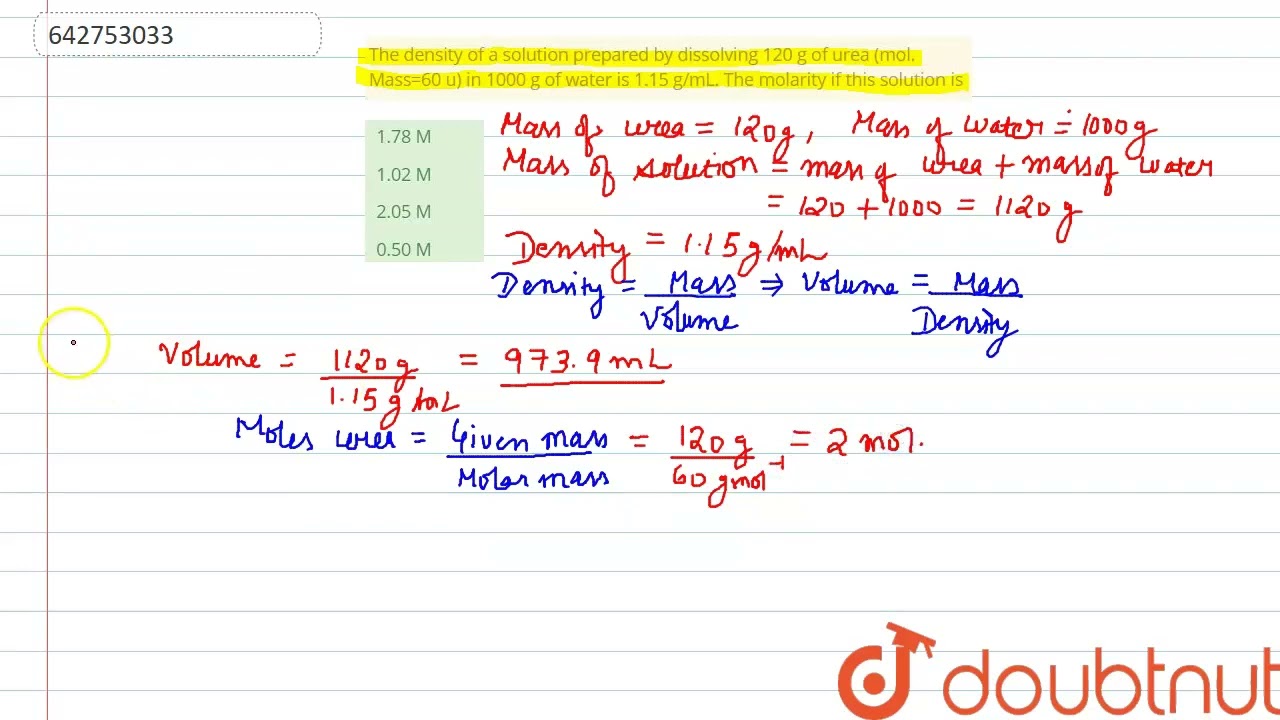 642753033
The density of a solution prepared by dissolving 120 g of urea (mol.
Mass=60 u) in 1000 g of water is 1.15 g/mL. The molarity if this solution is
1.78 M
1.02 M
2.05 M
0.50 M
Mass of urea = 120g, Mass of water = 1000g
Mass of solution = mass of urea + mass of water
= 120 + 1000 = 1120 g
Density = 1.15 g/mL
Density = Mass / Volume ⇒ Volume = Mass / Density
Volume = 1120 g / 1.15 g/mL = 973.9 mL
Moles urea = Given mass / Molar mass = 120 g / 60 g mol⁻¹ = 2 mol.
doubtnut